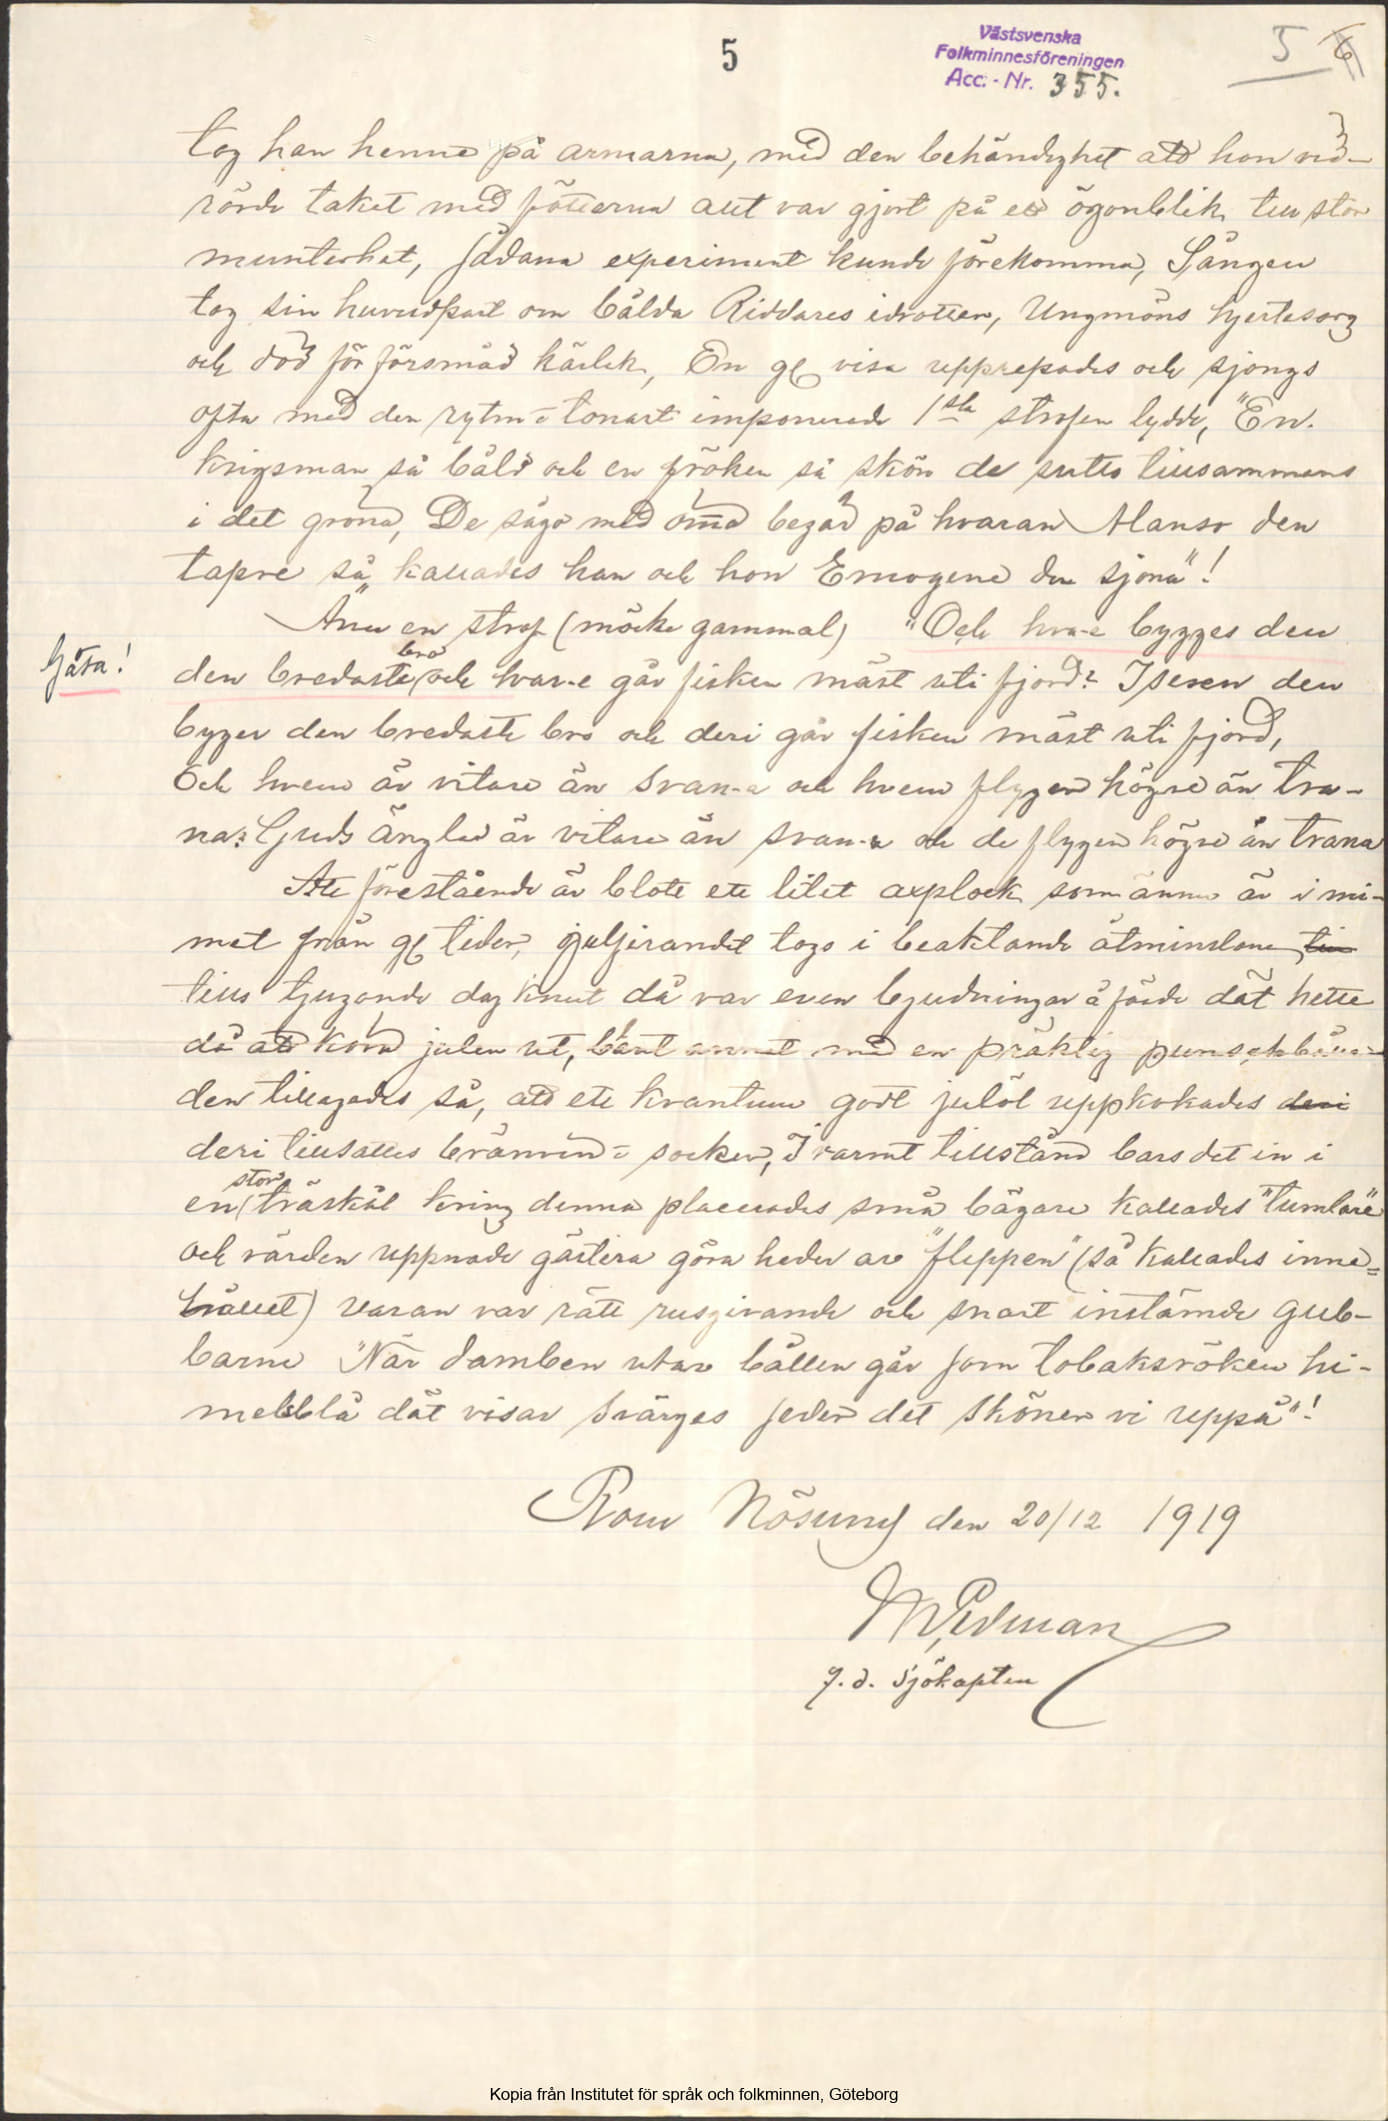 5
Västsvenska
Folkminnesföreningen
Acc. - Nr. 355.
5 6
tog han henne på armarna, med den behändighet att hon vid-
rörde taket med fötterna allt var gjort på ett ögonblik till stor
munterhet, sådana experiment kunde förekomma, Sången
tog sin huvudpart om bålda Riddares idrotter, Ungmöns hjertesorg
och död för försmåd kärlek, En gl visa upprepades och sjöngs
ofta med den rytm = tonart imponerade 1sta strofen lydde, "En
krigsman så båld och en fröken så skön de sutto tillsammans
i det gröna, De sågo med öma begär på hvaran Alanso den
tapre så kallades han och hon Emogene den sjöna"!
Ännu en strof (möcke gammal) "Och hvar-e bygges den
Gåta!
den bredaste bro och hvar-e går fisken mäst uti fjord? Iseren den
byger den bredaste bro och deri går fisken mäst uti fjord,
Och hvem är vitare än svan-a och hvem flyger högre än tra-
na? Guds änglar är vitare än svan-a och de flyger högre än trana
Att förestående är blott ett litet axplock som ännu är i mi-
net från gl tider, julfirandet togs i beaktande åtminstone till
tills tjugonde dag knut då var even bjudningar å färde dät hette
då att köra julen ut, blant annat med en präktig punschbåll
den tillagades så, att ett kvantum godt julöl uppkokades deri
deri tillsattes brännvin = socker, I varmt tillstånd bars det in i
en stor träskål kring denna placerades små bägare kallades "tumlare"
och värden uppnade gästera göra heder av "flippen" (så kallades inne=
hållet) varan var rätt rusgivande och snart instämde gub-
barne "När damben utav bållen går som tobaksröken hi-
melsblå dät visar svärges seder det sköner vi uppå"!
Råön Nösund den 20/12 1919
M Pedman
f.d. Sjökapten
Kopia från Institutet för språk och folkminnen, Göteborg